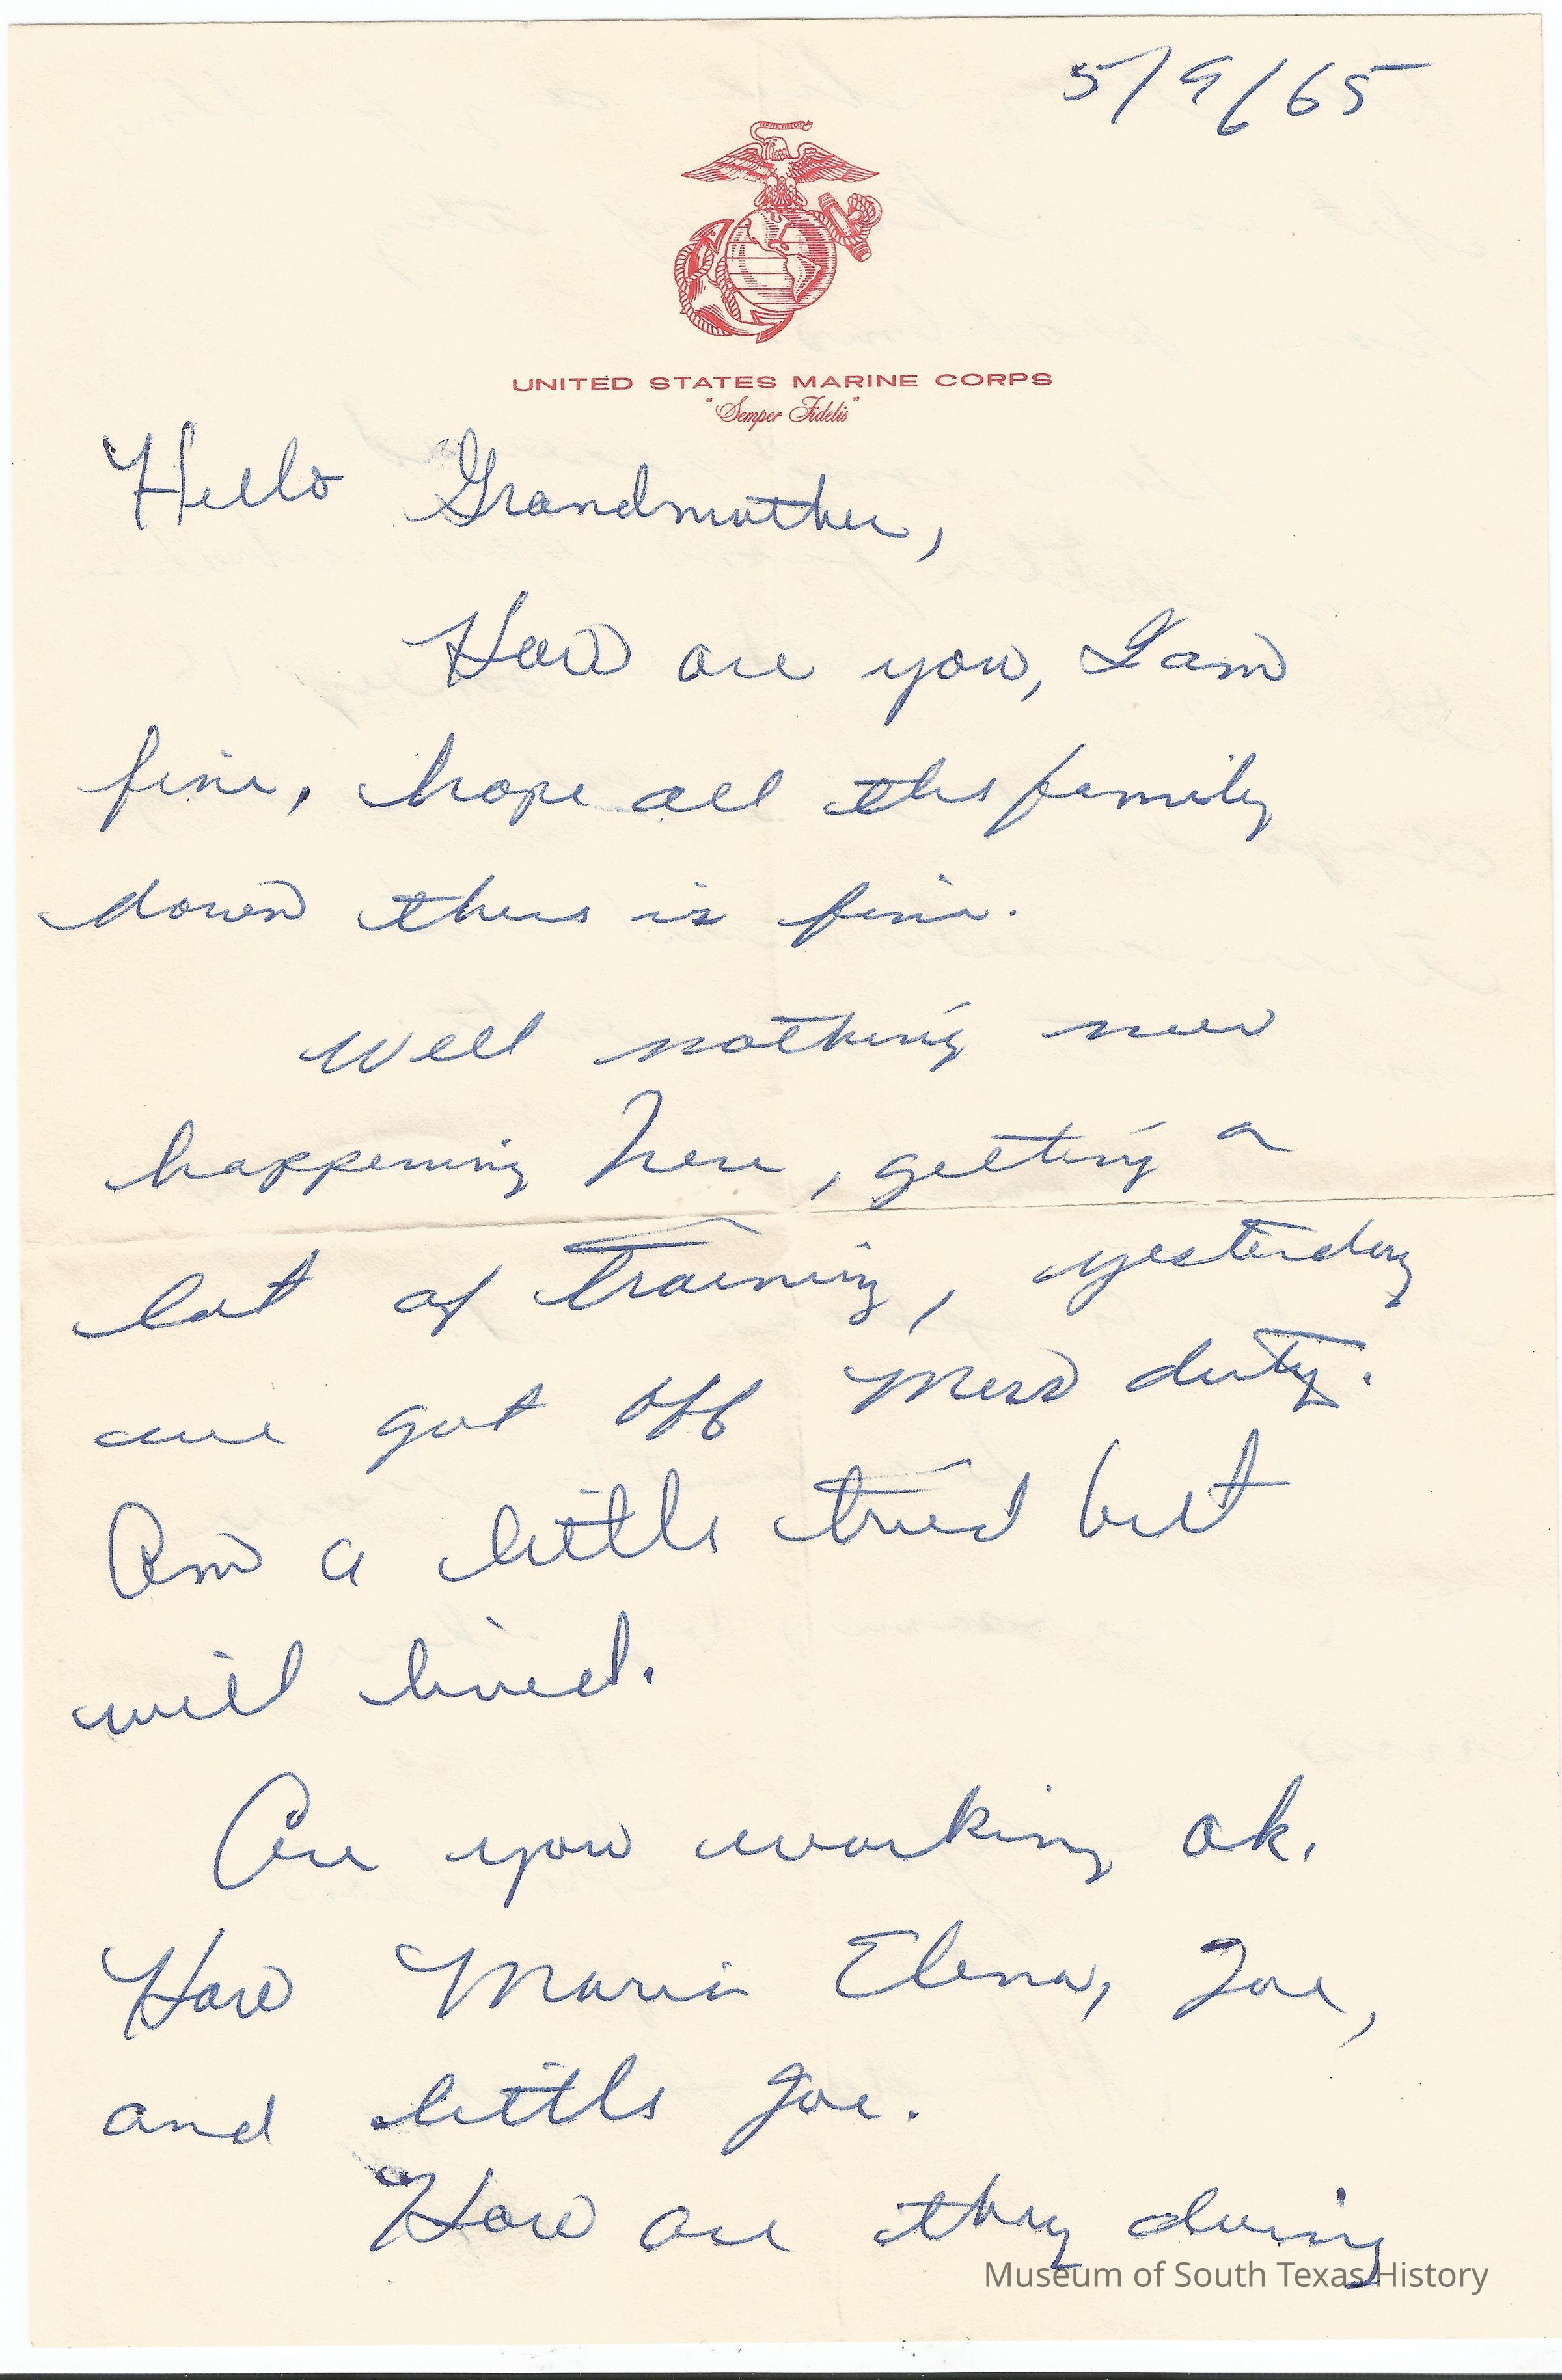 5/9/65
UNITED STATES MARINE CORPS
"Semper Fidelis"
Hello Grandmother,
How are you, I am
fine, hope all the family
down there is fine.
Well nothing new
happening here, getting a
lot of training, yesterday
we got off Mess duty.
Am a little tried but
will lived.
Are you working ok.
How Maria Elena, Joe,
and little Joe.
How are they doing
Museum of South Texas History